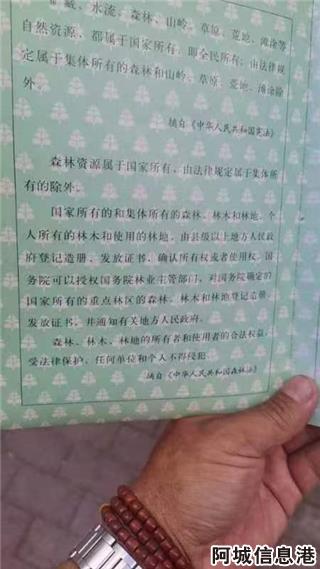 矿藏、水流、森林、山岭、草原、荒地、滩涂等
自然资源，都属于国家所有，即全民所有；由法律规
定属于集体所有的森林和山岭、草原、荒地、滩涂除
外。
摘自《中华人民共和国宪法》
森林资源属于国家所有，由法律规定属于集体所
有的除外。
国家所有的和集体所有的森林、林木和林地，个
人所有的林木和使用的林地，由县级以上地方人民政
府登记造册，发放证书，确认所有权或者使用权。国
务院可以授权国务院林业主管部门，对国务院确定的
国家所有的重点林区的森林、林木和林地登记造册，
发放证书，并通知有关地方人民政府。
森林、林木、林地的所有者和使用者的合法权益，
受法律保护，任何单位和个人不得侵犯。
摘自《中华人民共和国森林法》
阿城信息港